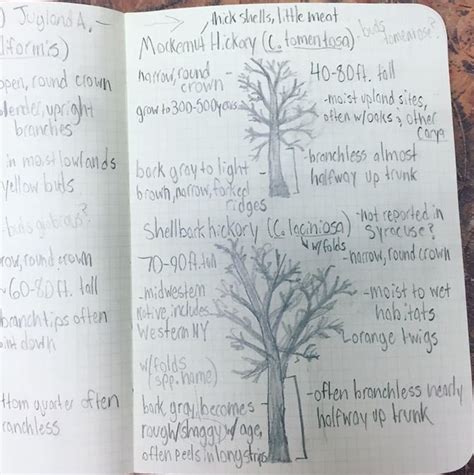 ) Jugland A.
lformis)
open, round crown
slender, upright
branches
in moist lowlands
yellow buds
-buds glabrous?
row, round crown
~60-80 ft. tall
branch tips often
point down
ttom quarter often
ranchless
thick shells, little meat
Mockernut Hickory (C. tomentosa) -buds tomentose?
narrow, round
crown
40-80 ft. tall
grow to 300-500 years
-moist upland sites,
often w/oaks & other
Carya
-branchless almost
halfway up trunk
bark gray to light
brown, narrow, forked
ridges
Shellbark hickory (C. laciniosa)
w/folds
-not reported in
Syracuse?
-narrow, round crown
70-90 ft. tall
-midwestern
native, includes
Western NY
-moist to wet
habitats
orange twigs
w/folds
spp. name)
bark, gray, becomes
rough/shaggy w/age,
often peels in long strips
-often branchless nearly
halfway up trunk